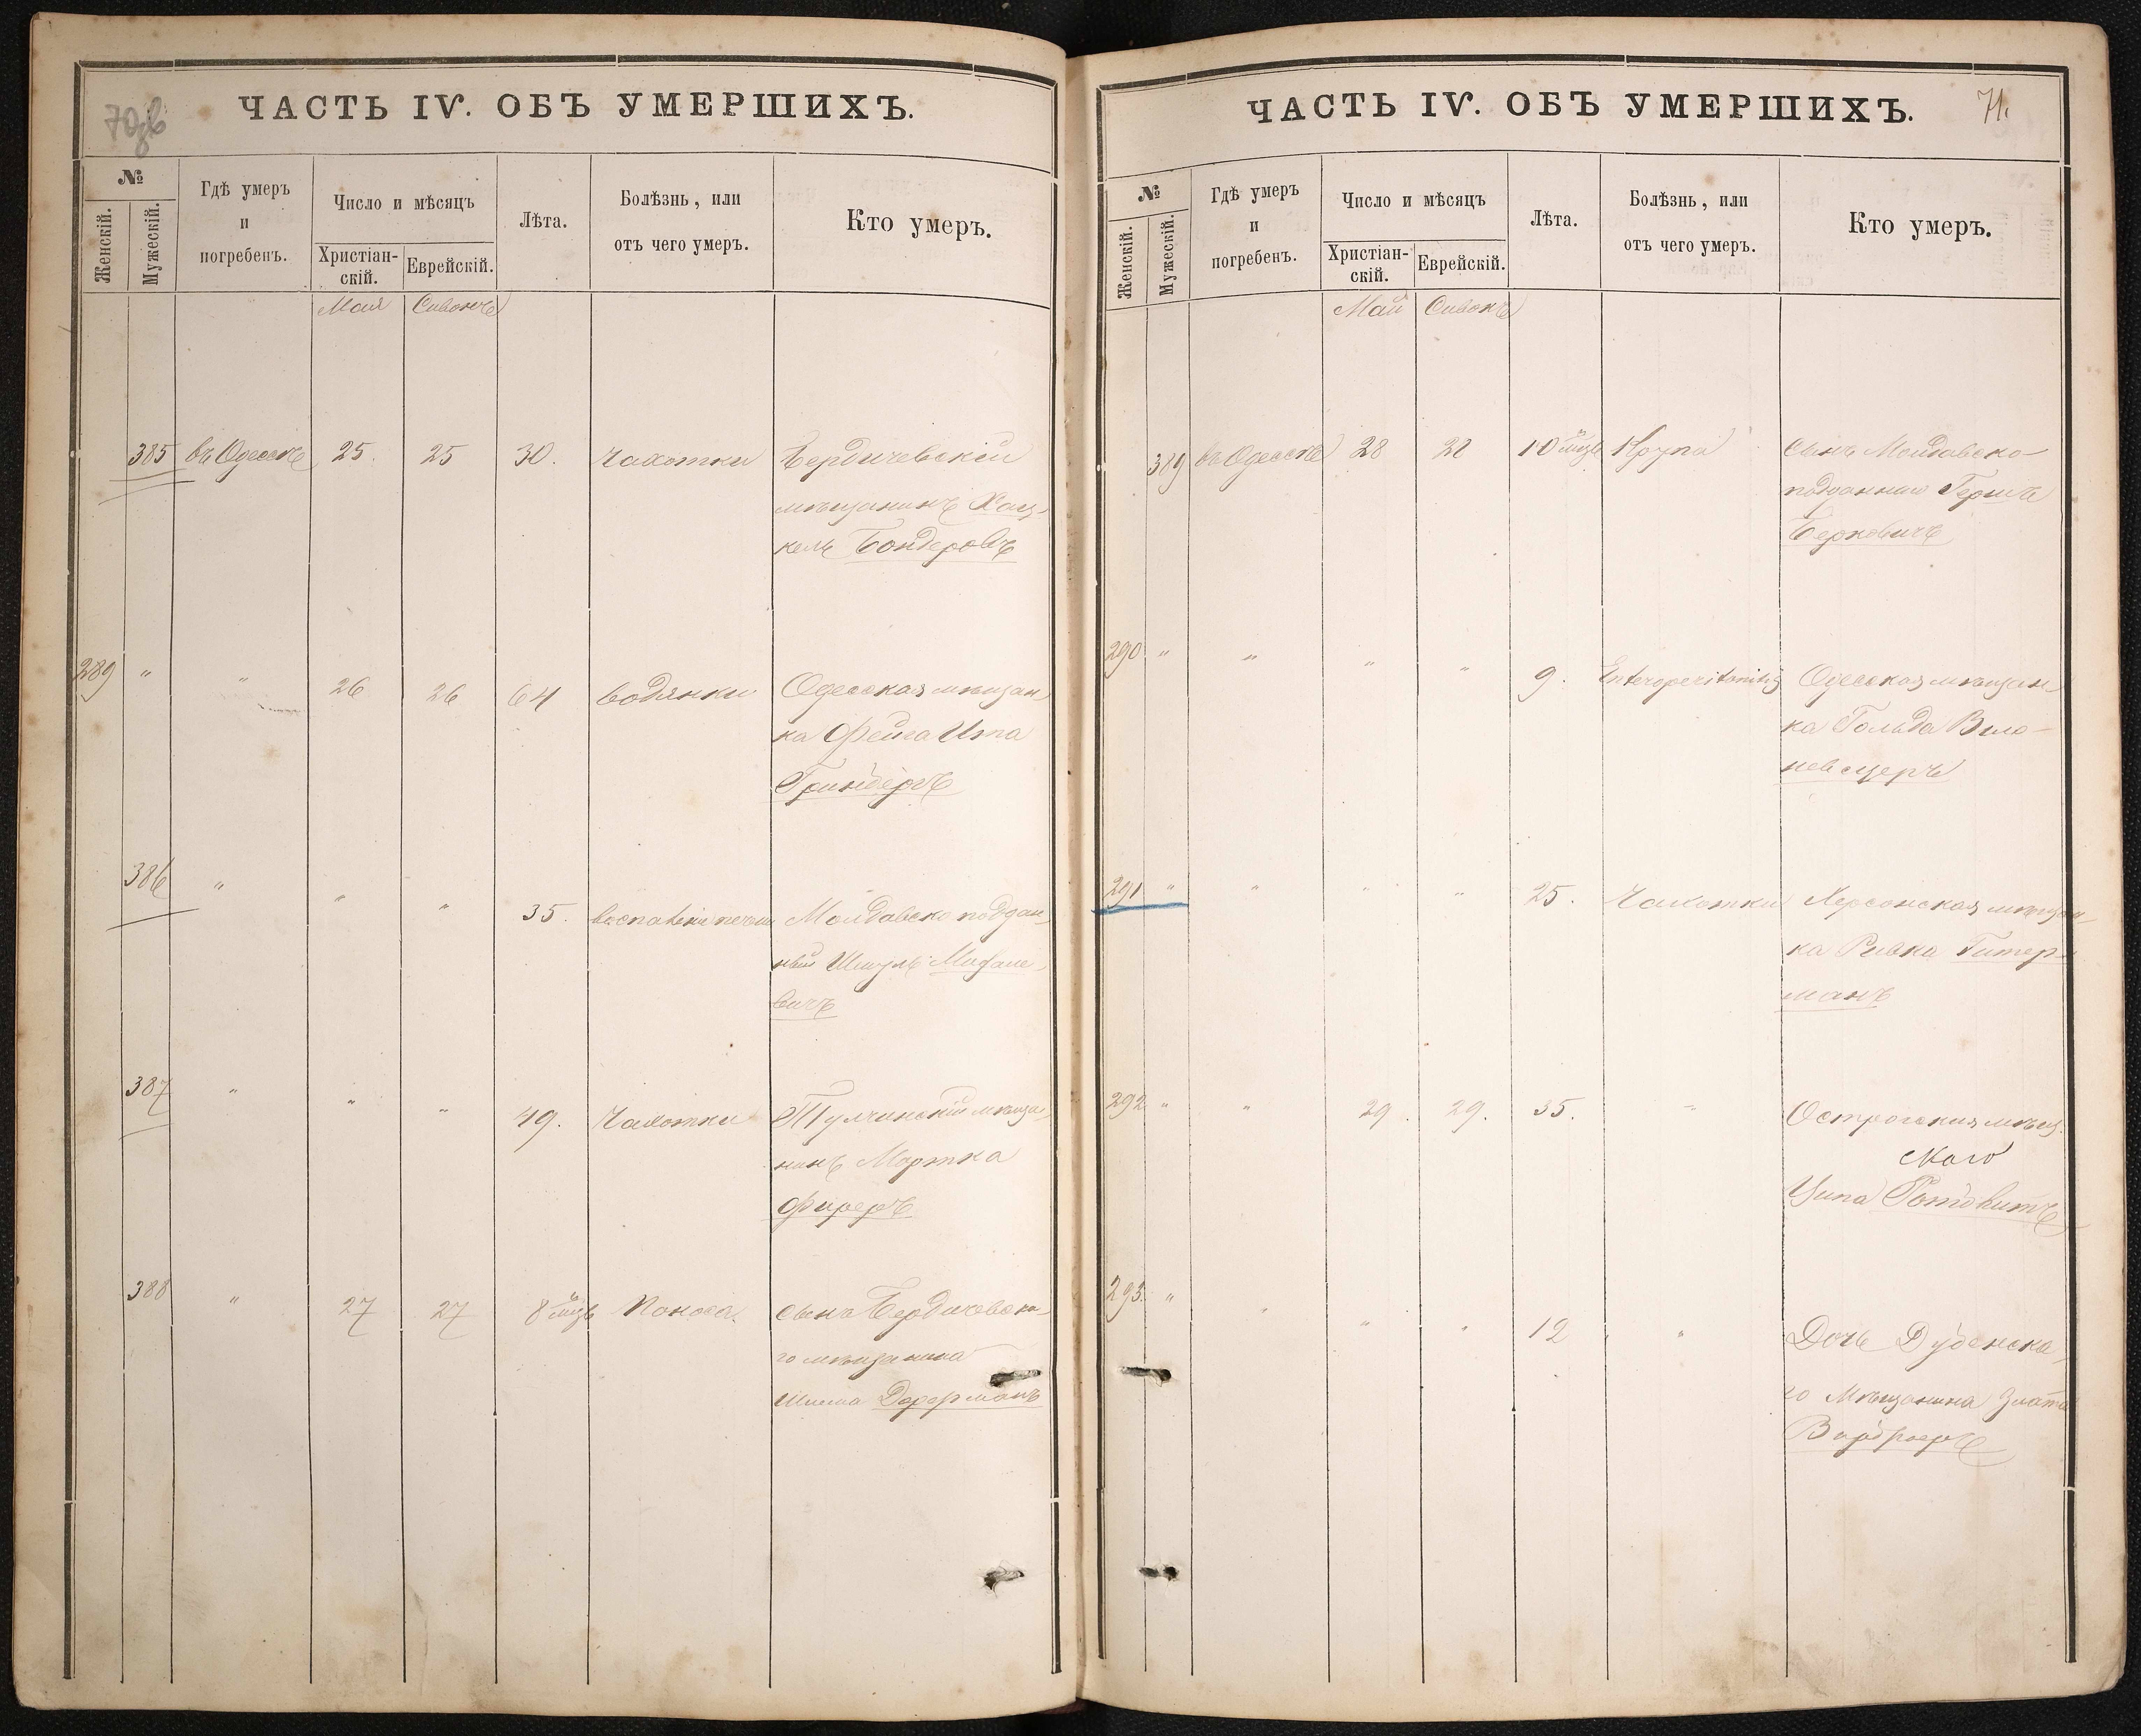 70зв
ЧАСТЬ IV. ОБЪ УМЕРШИХЪ.
№
Женскій.
Мужескій.
Гдѣ умеръ
и
погребенъ.
Число и мѣсяцъ
Христіан-
скій.
Еврейскій.
Лѣта.
Болѣзнь, или
отъ чего умеръ.
Кто умеръ.
Мая Сивонъ
385 въ Одессѣ 25. 25 30. чахотки Бердичевскій
мѣщанинъ Хац-
кель Бондеровъ
289 " " 26 26 64 водянки Одесская мѣщан-
ка Фейга Ита
Гринбергъ
386 " " " 35. Молдавско поддан-
ный Шмуль
вичъ
387 " " " 49. Чахотки Тульчинскій мѣща-
нинъ Мортка
Фиреръ
388 " 27 27 8 мцъ Поноса. сынъ Бердичевска-
го мѣщанина
Шлема
ЧАСТЬ IV. ОБЪ УМЕРШИХЪ.
71.
№
Женскій.
Мужескій.
Гдѣ умеръ
и
погребенъ.
Число и мѣсяцъ
Христіан-
скій.
Еврейскій.
Лѣта.
Болѣзнь, или
отъ чего умеръ.
Кто умеръ.
Май Сивонъ
389 въ Одессѣ 28 28 10 мцъ Крупа Сынъ Молдавско-
подданнаго Гершъ
Берковичъ
290 " " " " 9. Enteroperitonitis Одесская мѣщан-
ка Гольда Вило-
невецеръ
291 " " " " 25. Чахотки Херсонская мѣщан-
ка Ривка Гитер-
манъ
292 " " 29. 29. 35. " Острогская мѣщ.
Ципа
293. " " " " 12 " Дочь Дубенска-
го Мѣщанина Злата